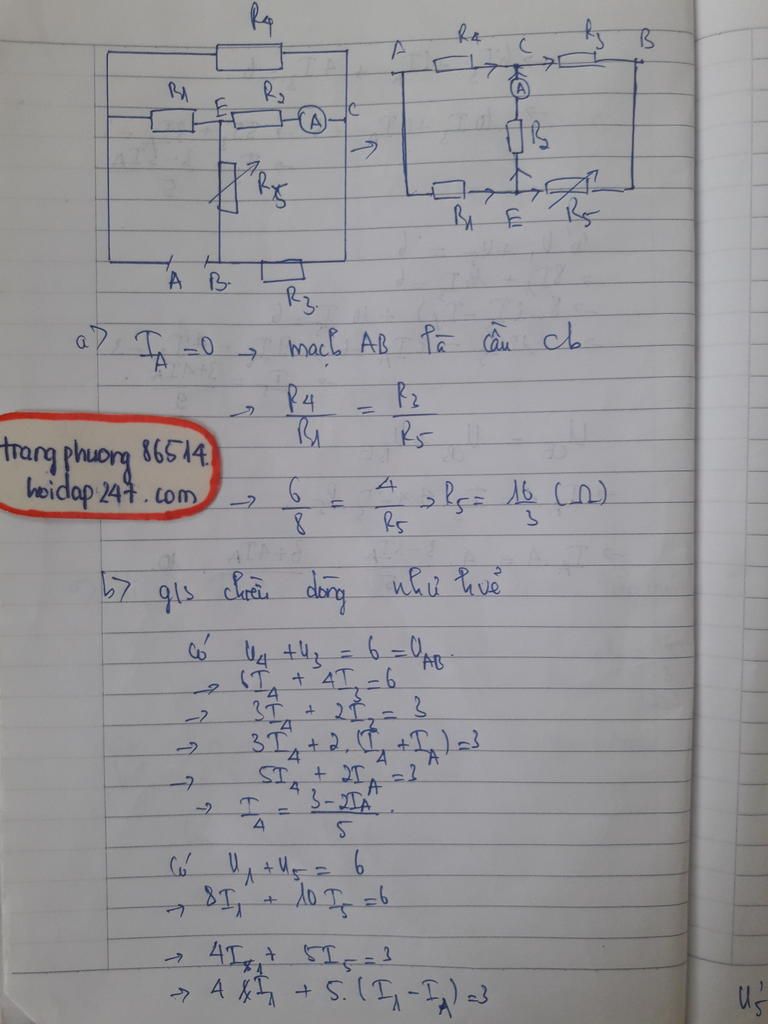 R4
R1 E R2 A C
R5
A B
R3
A R4 C R3 B
A
R2
R1 E R5
a) I_A = 0 → mạch AB là cầu cb
→ R4/R1 = R3/R5
→ 6/8 = 4/R5 → R5 = 16/3 (Ω)
trangphuong 86514.
hoidap247.com
b) g/s chiều dòng như hvẽ
có U4 + U3 = 6 = U_AB
→ 6I4 + 4I3 = 6
→ 3I4 + 2I3 = 3
→ 3I4 + 2.(I4 + I_A) = 3
→ 5I4 + 2I_A = 3
→ I4 = (3 - 2I_A)/5.
Có U1 + U5 = 6
→ 8I1 + 10I5 = 6
→ 4I1 + 5I5 = 3
→ 4I1 + 5.(I1 - I_A) = 3
U5